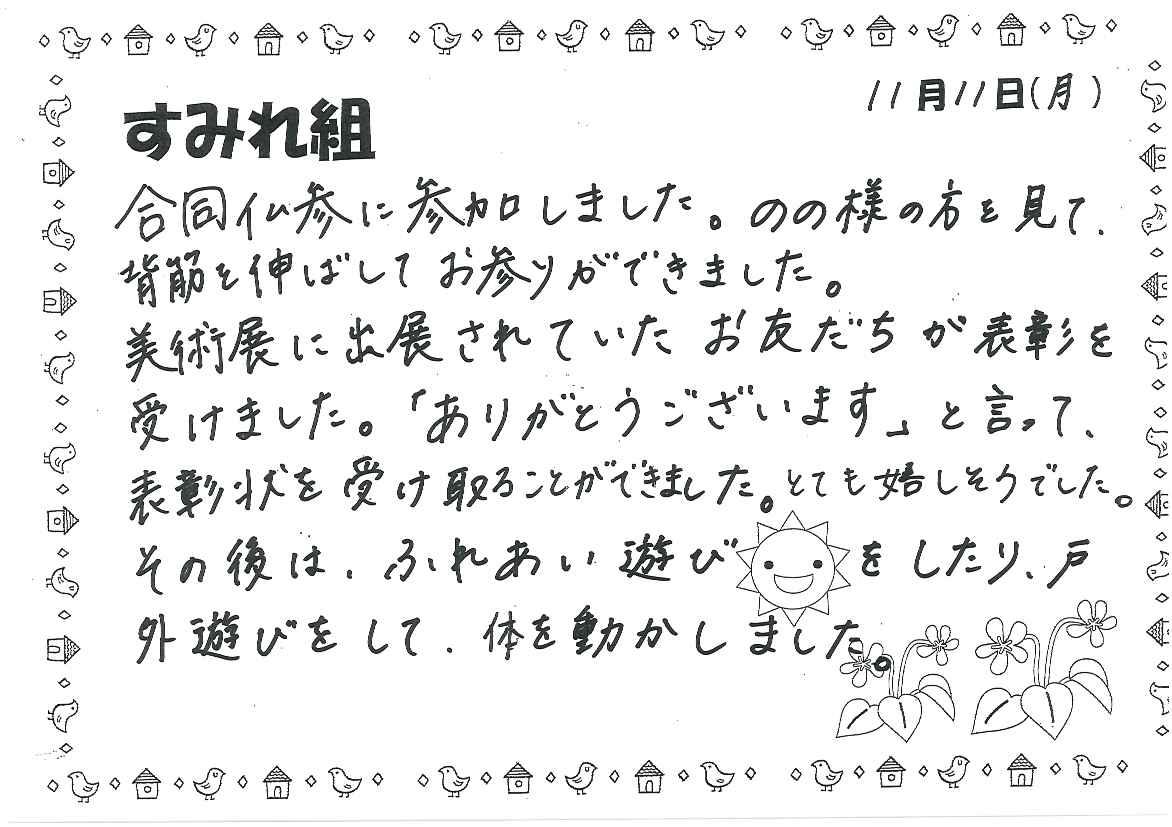 11月11日(月)
すみれ組
合同仏参に参加しました。ののの様の方を見て、
背筋を伸ばしてお参りができました。
美術展に出展されていたお友だちが表彰を
受けました。「ありがとうございます」と言って、
表彰状を受け取ることができました。とても嬉しそうでした。
その後は、ふれあい遊びをしたり、戸
外遊びをして、体を動かしました。